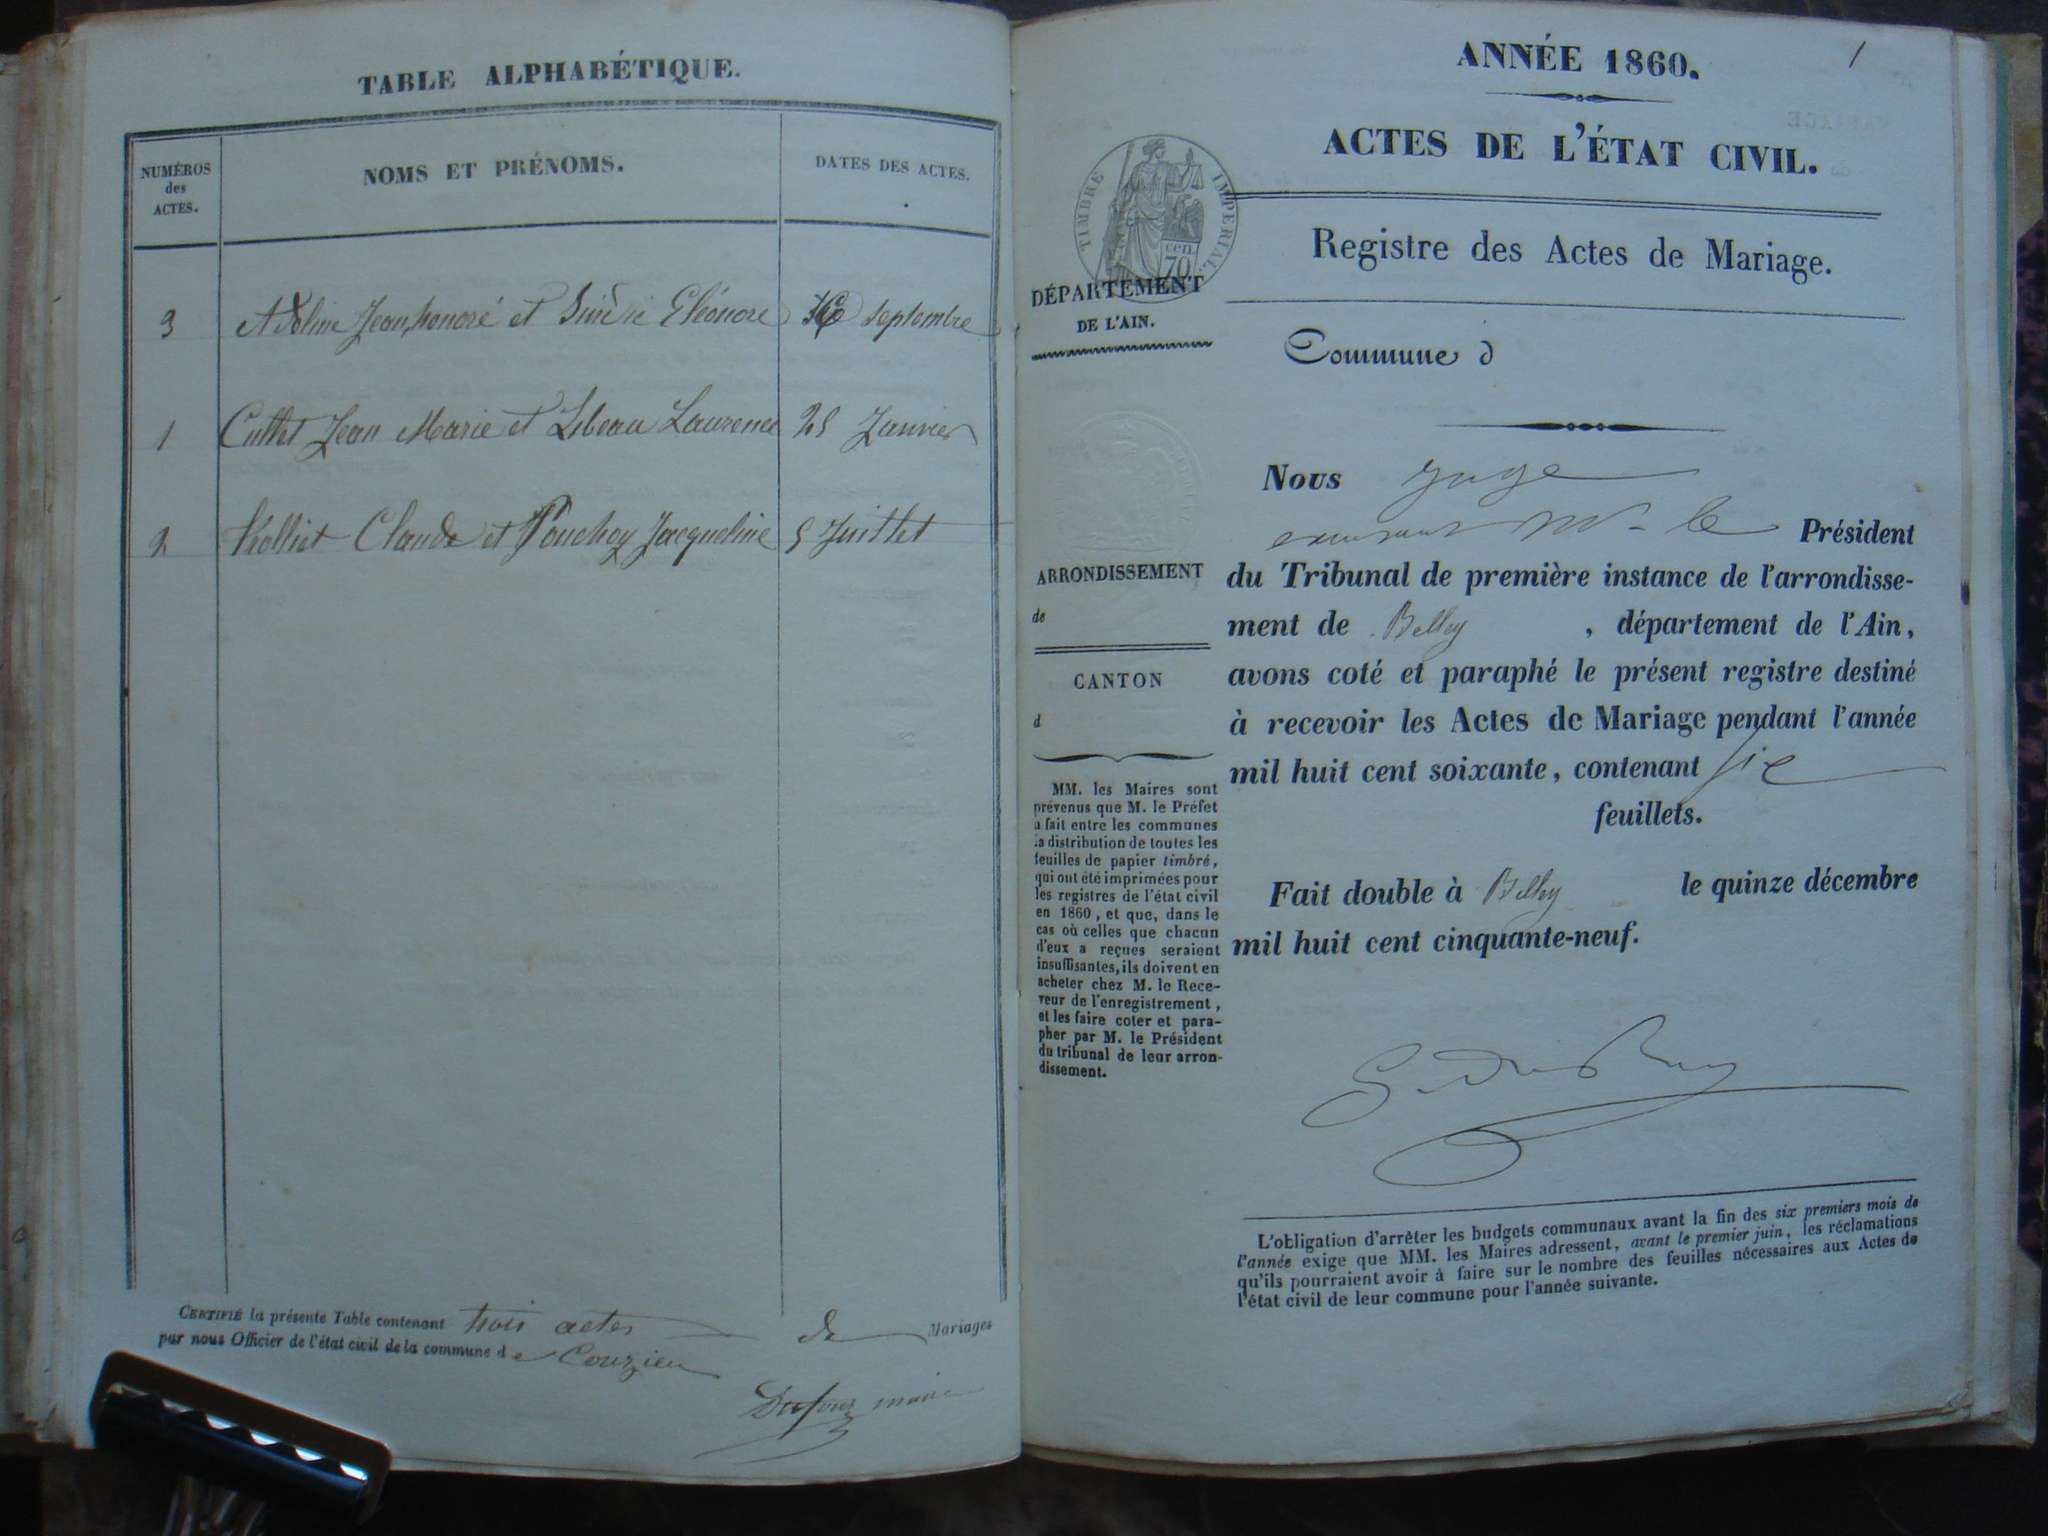 TABLE ALPHABÉTIQUE.
NUMÉROS
des
ACTES.
NOMS ET PRÉNOMS.
DATES DES ACTES.
3 Jean honoré et Eléonore septembre
1 Cullet Jean Marie et Laurence 25 Janvier
2 Rolliet Claude et Jacqueline 5 Juillet
CERTIFIÉ la présente Table contenant trois actes de Mariages
par nous Officier de l'état civil de la commune de Conzieu
Dufour maire
1
ANNÉE 1860.
ACTES DE L'ÉTAT CIVIL.
TIMBRE IMPÉRIAL.
cen.
70
Registre des Actes de Mariage.
DÉPARTEMENT
DE L'AIN.
Commune d
ARRONDISSEMENT
de
CANTON
d
MM. les Maires sont
prévenus que M. le Préfet
a fait entre les communes
la distribution de toutes les
feuilles de papier timbré,
qui ont été imprimées pour
les registres de l'état civil
en 1860, et que, dans le
cas où celles que chacun
d'eux a reçues seraient
insuffisantes, ils doivent en
acheter chez M. le Rece-
veur de l'enregistrement,
et les faire coter et para-
pher par M. le Président
du tribunal de leur arron-
dissement.
Nous juge
Mr le Président
du Tribunal de première instance de l'arrondisse-
ment de Belley, département de l'Ain,
avons coté et paraphé le présent registre destiné
à recevoir les Actes de Mariage pendant l'année
mil huit cent soixante, contenant six
feuillets.
Fait double à Belley le quinze décembre
mil huit cent cinquante-neuf.
L'obligation d'arrêter les budgets communaux avant la fin des six premiers mois de
l'année exige que MM. les Maires adressent, avant le premier juin, les réclamations
qu'ils pourraient avoir à faire sur le nombre des feuilles nécessaires aux Actes de
l'état civil de leur commune pour l'année suivante.